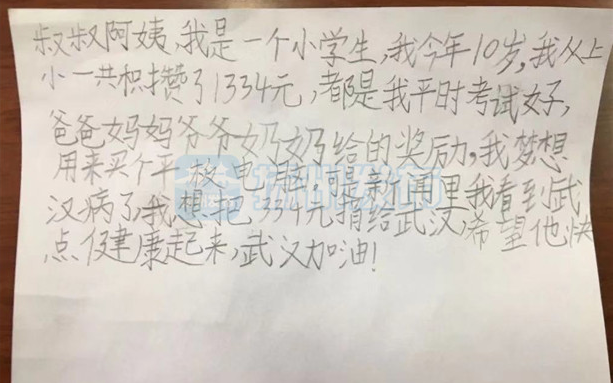 叔叔阿姨,我是一个小学生,我今年10岁,我从上
小一共积攒了1334元,都是我平时考试好,
爸爸妈妈爷爷奶奶给的奖励,我梦想
用来买个平板电脑,可是新闻里我看到武
汉病了,我想把334元捐给武汉,希望他快
点健康起来,武汉加油!